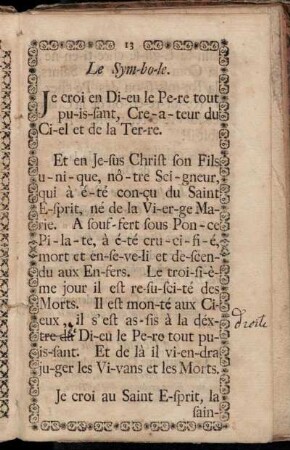 13
Le Sym-bo-le.
Je croi en Di-eu le Pe-re tout
pu-is-sant, Cre-a-teur du
Ci-el et de la Ter-re.
Et en Je-sus Christ son Fils
u-ni-que, nô-tre Sei-gneur,
qui à é-té con-çu du Saint
E-sprit, né de la Vi-er-ge Ma-
rie. A souf-fert sous Pon-ce
Pi-la-te, à é-té cru-ci-fi-é,
mort et en-se-ve-li et de-scen-
du aux En-fers. Le troi-si-è-
me jour il est re-su-sci-té des
Morts. Il est mon-té aux Ci-
eux, il s'est as-sis à la dex-
tre de Di-eu le Pe-re tout pu-
is-sant. Et de là il vi-en-dra
ju-ger les Vi-vans et les Morts.
Je croi au Saint E-sprit, la
sain-
droite